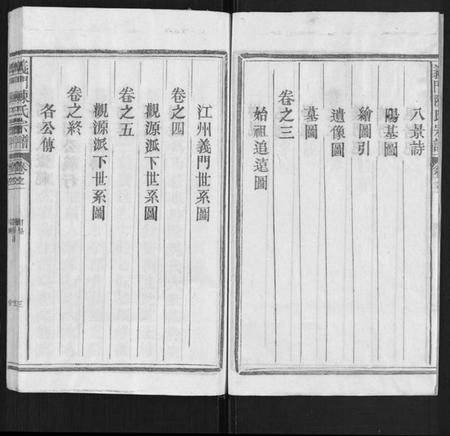 八景詩
陽基圖
繪圖引
遺像圖
墓圖
卷之三
始祖追遠圖
江州義門世系圖
卷之四
觀源派下世系圖
卷之五
觀源派下世系圖
卷之終
各公傳
義門陳氏宗譜